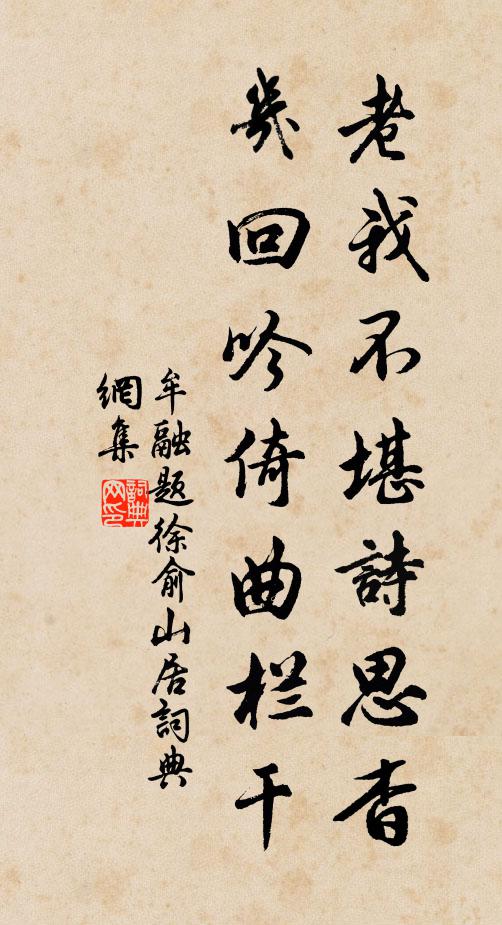 老我不堪詩思杳
幾回吟倚曲栏干
牟融題徐俞山居詞典
網集
詞典網印